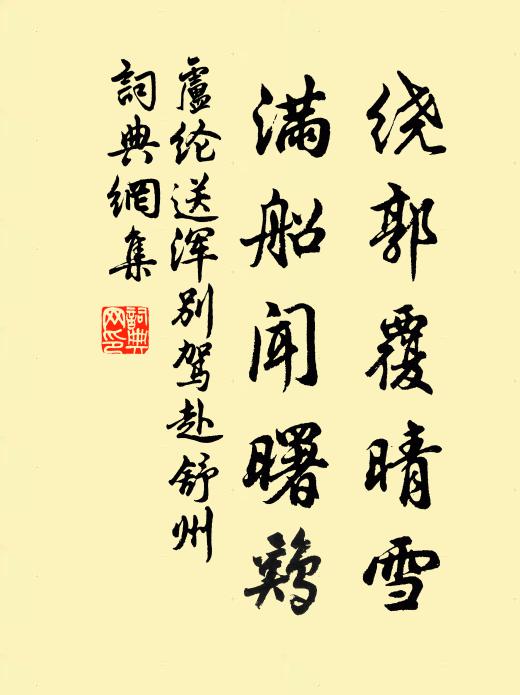 绕郭覆晴雪
满船闻曙鸡
盧纶送浑别驾赴舒州
詞典網集
詞典
网印